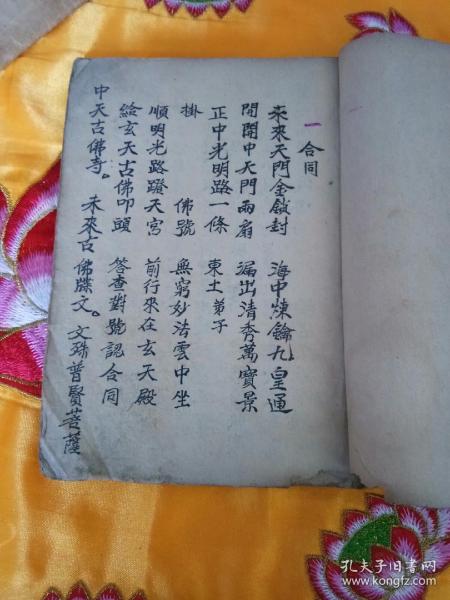 一 合同
未來天門金鎖封 海中煉鑰九皇通
開開中天門兩扇 漏出清秀萬寶景
正中光明路一條 東土弟子
掛 佛號 無窮妙法雲中坐
順明光路蹬天宮 前行來在玄天殿
給玄天古佛叩頭 答查對號認合同
中天古佛寺。 未來古佛牒文。文殊普賢菩薩
孔夫子旧书网
www.kongfz.com